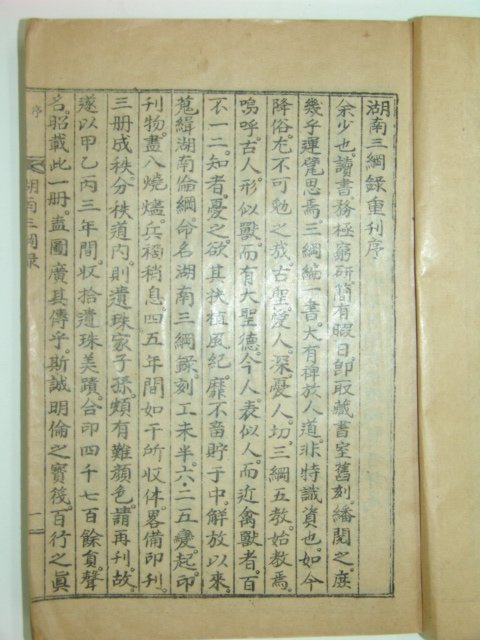 湖南三綱錄重刊序
余少也。讀書。務極窮研。簡有暇日。卽取藏書室舊刻。繙閱之。庶
幾乎運覽思焉。三綱編一書。大有裨於人道。非特識資也。如今
降俗。尤不可勉之哉。古聖。愛人。深。憂人。切。三綱五敎。始敎焉。
嗚呼。古人。形似獸。而有大聖德。今人。表似人。而近禽獸者。百
不一二。知者。憂之。欲其扶植風紀。靡不畜貯于中。解放以來。
蒐緝湖南倫綱。命名湖南三綱錄。刻工未半。六·二五變。起。印
刊物。盡入燒燼。兵禍稍息。四五年間。如干所收。休畧備印刊。
三册成秩。分秩道內。則遺珠家子孫。頗有難顔色。請再刊。故。
遂以甲乙丙三年間。收拾遺珠美蹟。合印四千七百餘員。聲
名。昭載此一册。盖圖廣其傳乎。斯誠明倫之寶筏。百行之眞
序
湖南三綱录
一